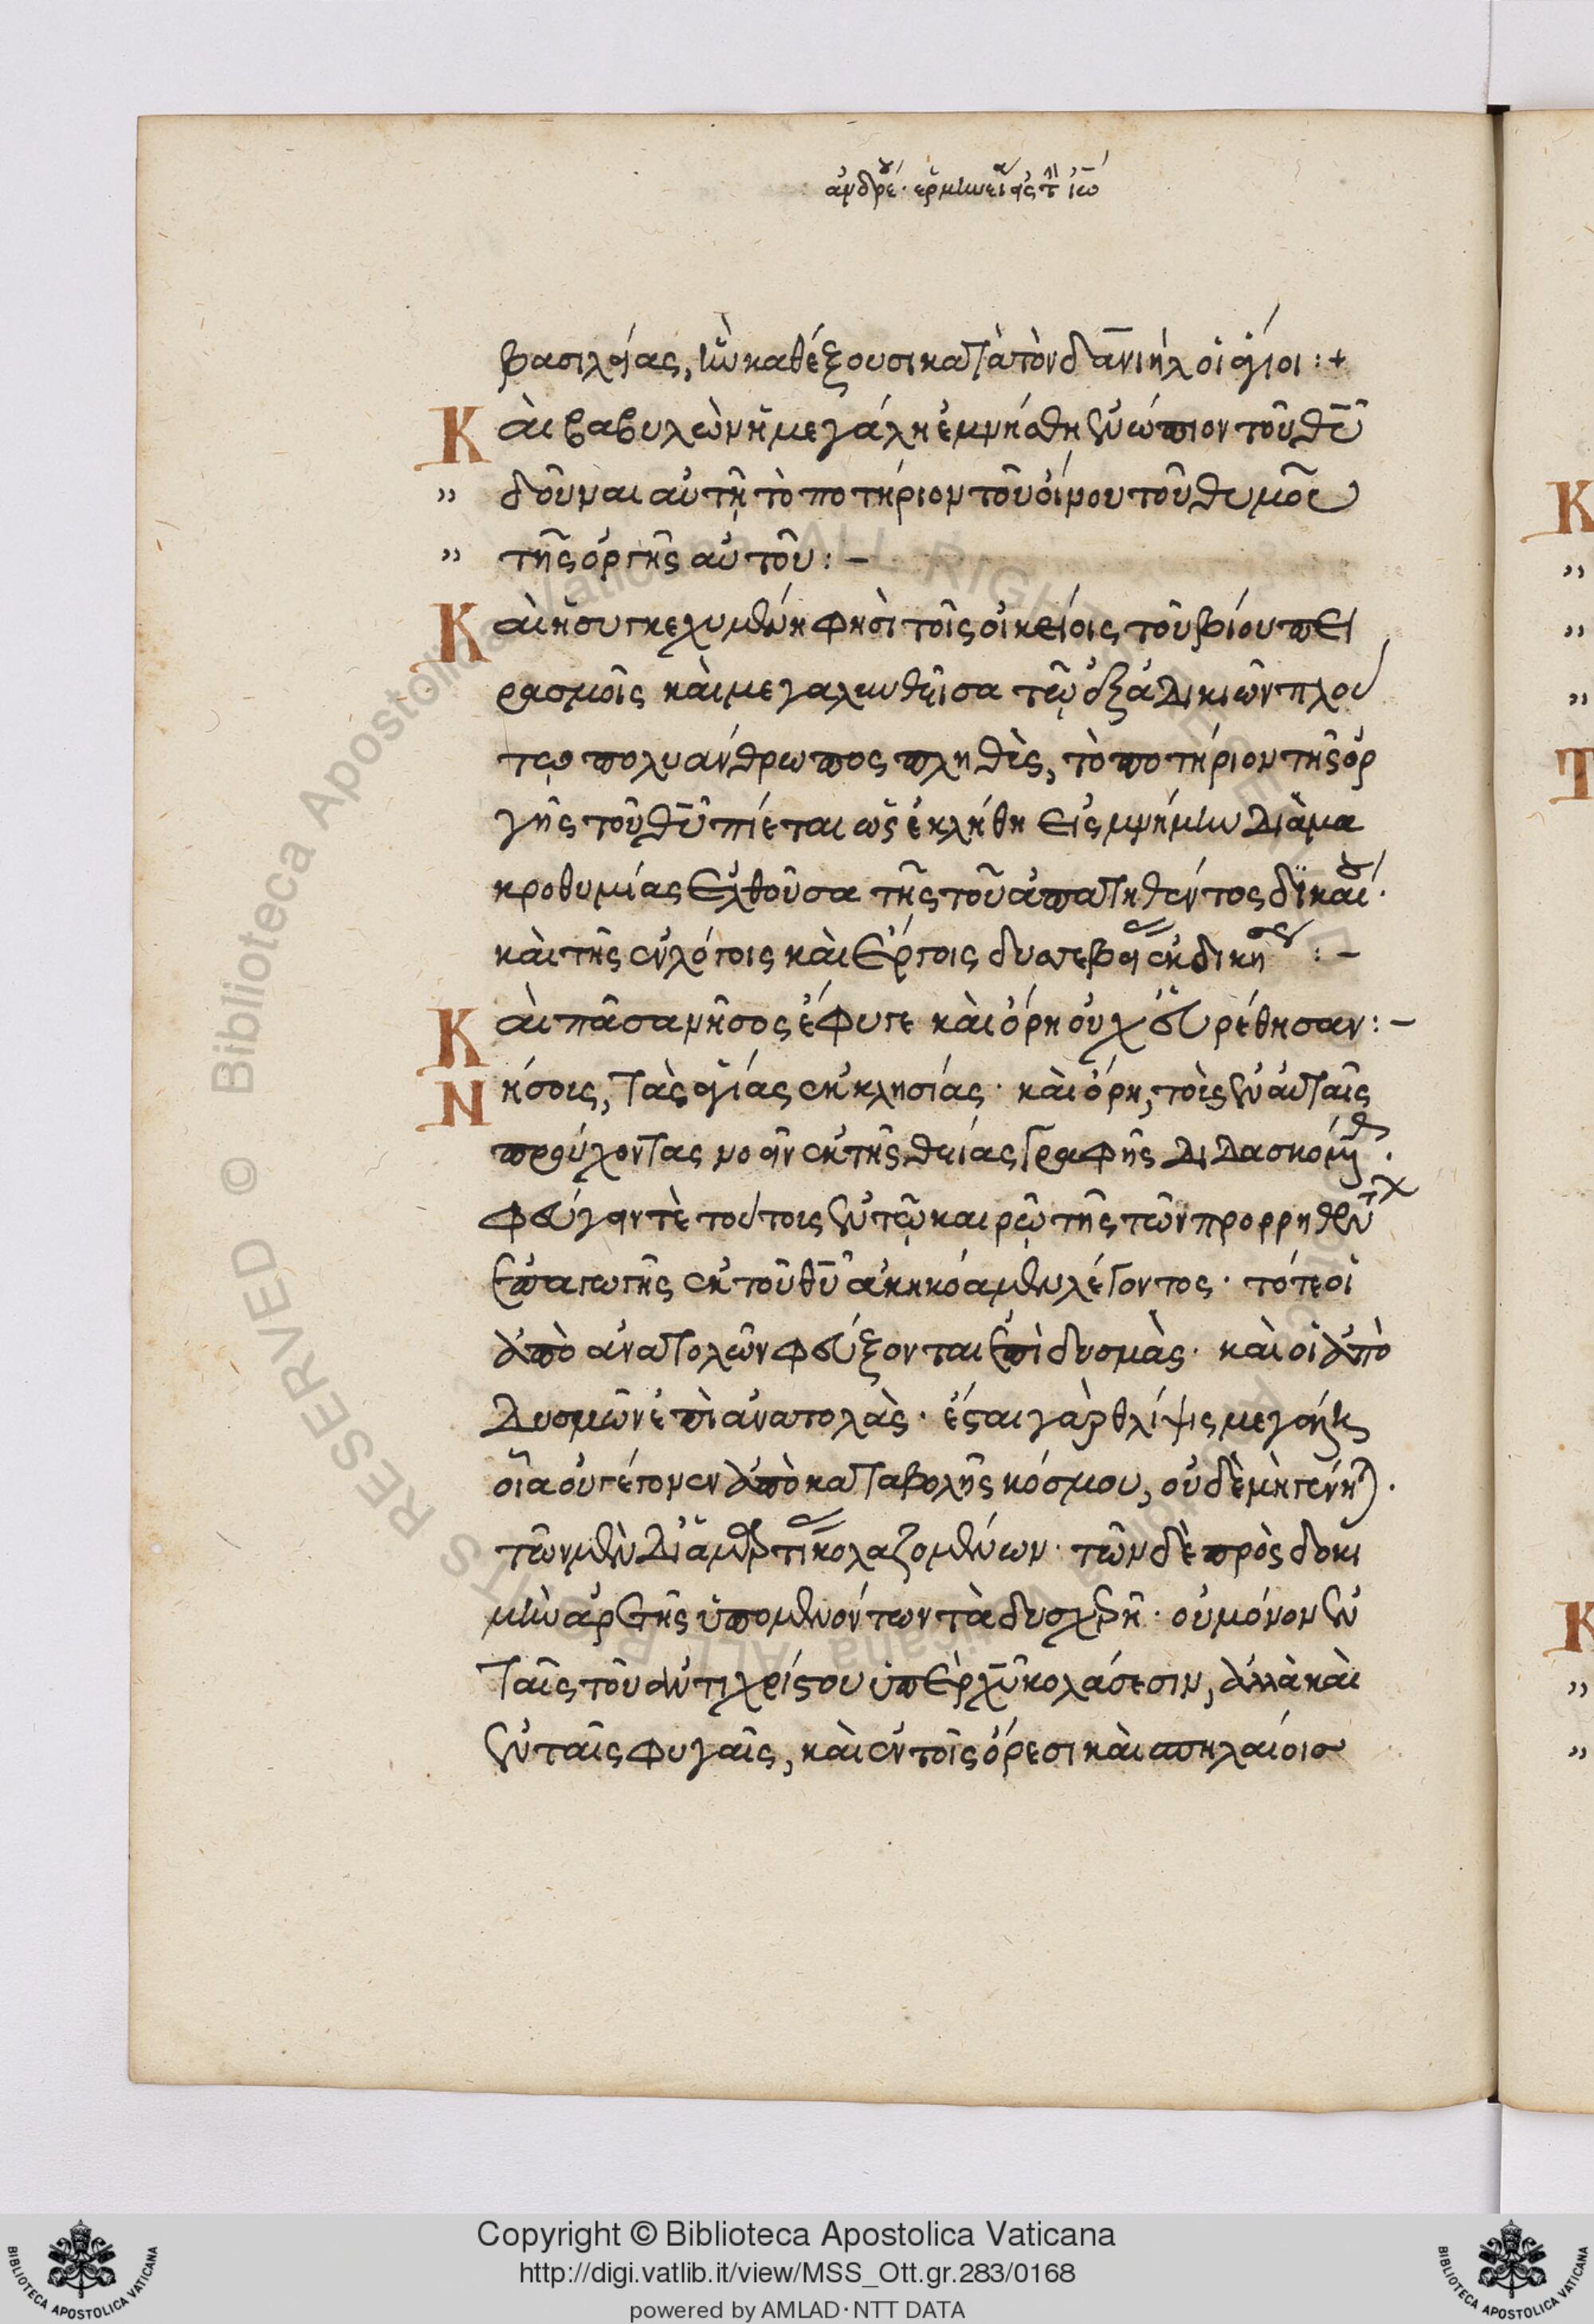 ἀνδρέου ἑρμηνεία εἰς τὴν ἰω
βασιλείας, ἣν καθέξουσι κατὰ τὸν δανιὴλ οἱ ἅγιοι : +
Καὶ βαβυλὼν ἡ μεγάλη ἐμνήσθη ἐνώπιον τοῦ θυ
" δοῦναι αὐτῇ τὸ ποτήριον τοῦ οἴνου τοῦ θυμοῦ
" τῆς ὀργῆς αὐτοῦ : -
Καὶ ἡ συγκεχυμένη φησὶ τοῖς οἰκείοις τοῦ βίου πει
ρασμοῖς καὶ μεγαλυνθεῖσα τῷ ἐξ ἀδικιῶν πλού
τῳ πολυάνθρωπος πληθὺς, τὸ ποτήριον τῆς ὀρ
γῆς τοῦ θυ πίεται ὡς ἐκλήθη εἰς μνήμην διὰ μα
κροθυμίας ἐλθοῦσα τῆς τοῦ ἀπατηθέντος δικαίου
καὶ τῆς ἐν λόγοις καὶ ἔργοις δυσσεβείας ἐκδικήσεως : -
Καὶ πᾶσα νῆσος ἔφυγε καὶ ὄρη οὐχ εὑρέθησαν : -
Νήσους, τὰς ἁγίας ἐκκλησίας · καὶ ὄρη, τοὺς ἐν αὐταῖς
προύχοντας νοεῖν ἐκ τῆς θείας γραφῆς διδασκόμεθα ·
φεύγειν τὲ τούτους ἐν τῷ καιρῷ τῆς τῶν προρρηθέντων
ἐπαγωγῆς ἐκ τοῦ θυ ἀκηκόαμεν λέγοντος · τότε οἱ
ἀπὸ ἀνατολῶν φεύξονται ἐπὶ δυσμὰς · καὶ οἱ ἀπὸ
δυσμῶν ἐπὶ ἀνατολὰς · ἔσται γὰρ θλίψις μεγάλη
οἵα οὐ γέγονεν ἀπὸ καταβολῆς κόσμου, οὐδὲ μὴ γένηται ·
τῶν μὲν δι ἁμαρτίας κολαζομένων · τῶν δὲ πρὸς δοκι
μὴν ἀρετῆς ὑπομενόντων τὰ δυσχερῆ · οὐ μόνον ἐν
ταῖς τοῦ ἀντιχρίστου ὑπὲρ χυ κολάσεσιν, ἀλλὰ καὶ
ἐν ταῖς φυγαῖς, καὶ ἐν τοῖς ὄρεσι καὶ σπηλαίοις
Copyright © Biblioteca Apostolica Vaticana
http://digi.vatlib.it/view/MSS_Ott.gr.283/0168
powered by AMLAD · NTT DATA